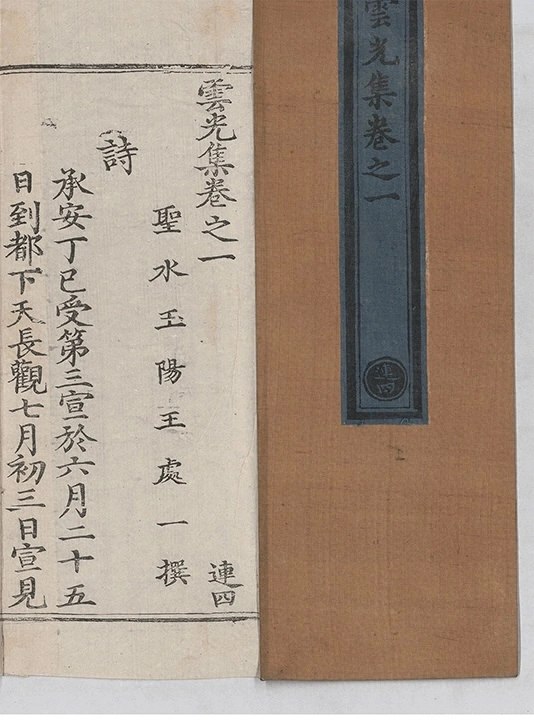 雲光集卷之一
連四
雲光集卷之一
連四
聖水玉陽王處一撰
詩
承安丁巳受第三宣於六月二十五
日到都下天長觀七月初三日宣見